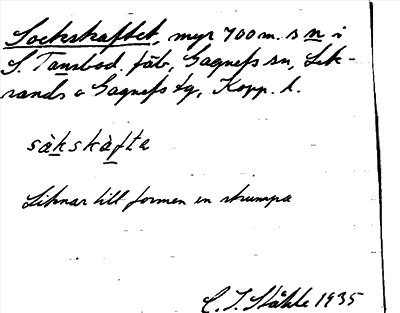 Sockskaftet, myr 700 m. s n i
S. Tansbod. fäb, Gagnefs sn, Lek-
rands o Gagnefs tg, Kopp. l.
sàkskàfta
Liknar till formen en strumpa
C. I. Ståhle 1935